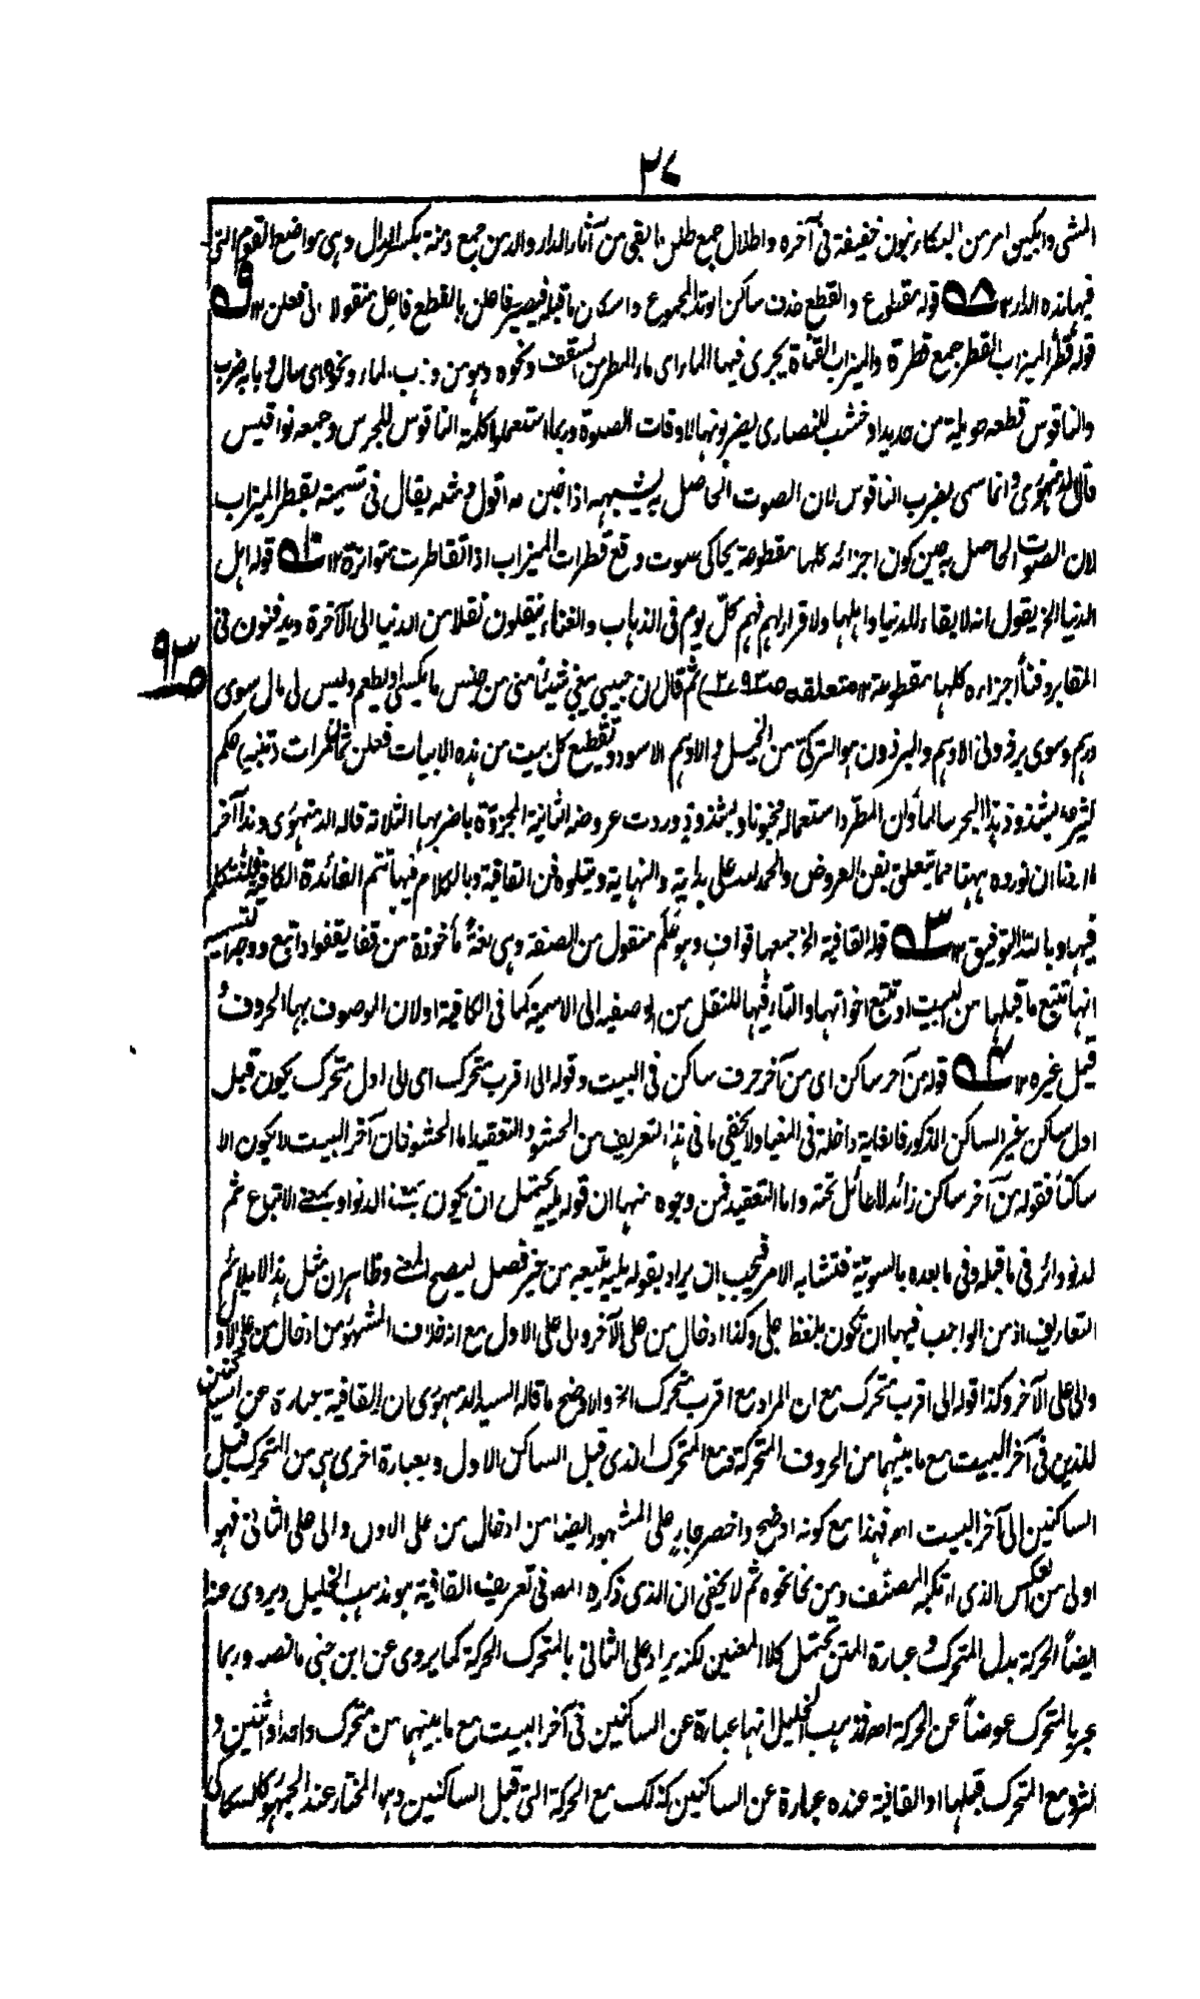 ٢٧
المشى وابكين امر من البكاء بنون خفيفة فى آخره واطلال جمع طلل ما بقى من آثار الدار والدمن جمع دمنة بكسر الدال وهى مواضع القوم التى
فيها هذه الدار ١٢ قوله مقطوع والقطع حذف ساكن الوتد المجموع واسكان ما قبله فيصير فاعلن بالقطع فاعل منقولا الى فعلن ١٢
قوله قطر الميزاب القطر جمع قطرة والميزاب القناة يجرى فيها الماء اى ماء المطر من السقف ونحوه وهو من وزب الماء ونحوه اى سال وبابه ضرب
والناقوس قطعة طويلة من حديد او خشب للنصارى يضربونها لاوقات الصلوة وربما استعملوا كلمة الناقوس للجرس وجمعه نواقيس
قال الدمنهورى وانما سمى بضرب الناقوس لان الصوت الحاصل به يشبهه اذا خبن اه اقول ومثله يقال فى تسميته بقطر الميزاب
لان الصوت الحاصل به حين كون اجزائه كلها مقطوعة يحاكى صوت وقع قطرات الميزاب اذا تقاطرت متواترة ١٢ قوله اهل
الدنيا الخ يقول انه لا بقاء للدنيا واهلها ولا قرار لهم فهم كل يوم فى الذهاب والفناء ينقلون نقلا من الدنيا الى الآخرة ويدفنون فى
المقابر دفناً اجزاءه كلها مقطوعة ١٢ متعلقه ص٩٣ ثم قال ان حبيبى يبغى شيئاً منى من جنس ما يكسى او يطعم وليس لى مال سوى
ص٩٣
درهم وسوى برذونى الادهم والبرذون هو التركى من الخيل والادهم الاسود وتقطيع كل بيت من هذه الابيات فعلن ثمان مرات (تنبيه) حكم
بشذوذ هذا البحر سالما وان المطرد استعماله مخبونا وبشذوذ ورود عروضه الثانية المجزوة باضربها الثلاثة قاله الدمنهورى وهذا آخر
ما اردنا ان نورده ههنا مما يتعلق بفن العروض والحمد لله على بدايته والنهاية ويتلوه فن القافية وبالكلام فيها تتم الفائدة الكافية فلنتكلم
فيها وبالله التوفيق ١٢ قوله القافية الخ جمعها قواف وهو علم منقول من الصفة وهى لغةً مأخوذة من قفا يقفو اذا تبع ووجه التسمية
انها تتبع ما قبلها من البيت او تتبع اخواتها والتاء فيها للنقل من الوصفية الى الاسمية كما فى الكافية او لان الموصوف بها الحروف و
قيل غيره ١٢ قوله من آخر ساكن اى من آخر حرف ساكن فى البيت وقوله الى اقرب متحرك اى الى اول متحرك يكون قبل
اول ساكن غير الساكن المذكور فالغاية داخلة فى المغيا ولا يخفى ما فى هذا التعريف من الحشو والتعقيد اما الحشو فان آخر البيت لا يكون الا
ساكناً فقوله من آخر ساكن زائد لا طائل تحته واما التعقيد فمن وجوه منها ان قوله يليه يحتمل ان يكون بمعنى الدنو او بمعنى الاتباع ثم
الدنو دائر فى ما قبله وفى ما بعده بالسوية فتشابه الامر فيجب ان يراد بقوله يليه يتبعه من غير فصل ليصح المعنى وظاهر ان مثل هذا لا يلائم
التعاريف اذ من الواجب فيها ان تكون بلفظ جلى وكذا ادخال من على الآخر والى على الاول مع انه خلاف المشهور من ادخال من على الاول
والى على الآخر وكذا قوله الى اقرب متحرك مع ان المراد مع اقرب متحرك الخ والاوضح ما قاله السيد الدمنهورى ان القافية عبارة عن الساكنين
اللذين فى آخر البيت مع ما بينهما من الحروف المتحركة ومع المتحرك الذى قبل الساكن الاول وبعبارة اخرى هى من المتحرك قبل
الساكنين الى آخر البيت اه فهذا مع كونه اوضح واخصر جار على المشهور ايضا من ادخال من على الاول والى على الثانى فهو
اولى من العكس الذى ارتكبه المصنف ومن نحا نحوه ثم لا يخفى ان الذى ذكره المص فى تعريف القافية هو مذهب الخليل ويروى عنه
ايضاً الحركة بدل المتحرك وعبارة المتن تحتمل كلا المعنيين لكنه يراد على الثانى بالمتحرك الحركة كما يروى عن ابن جنى ما نصه وربما
عبر بالمتحرك عوضاً عن الحركة اه فمذهب الخليل انها عبارة عن الساكنين فى آخر البيت مع ما بينهما من متحرك واحد او اثنين و
اكثر ومع المتحرك قبلهما او القافية عنده عبارة عن الساكنين كذلك مع الحركة التى قبل الساكنين وهو المختار عند الجمهور كالسكاكى